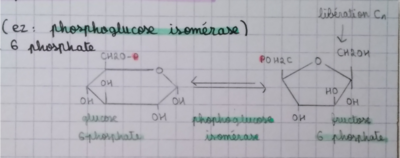 libération Cn
(ez: phosphoglucose isomérase)
6 phosphate
CH2O-P
O
OH
OH
OH
OH
POH2C
O
CH2OH
HO
OH
OH
glucose
6 phosphate
phosphoglucose
isomérase
fructose
6 phosphate